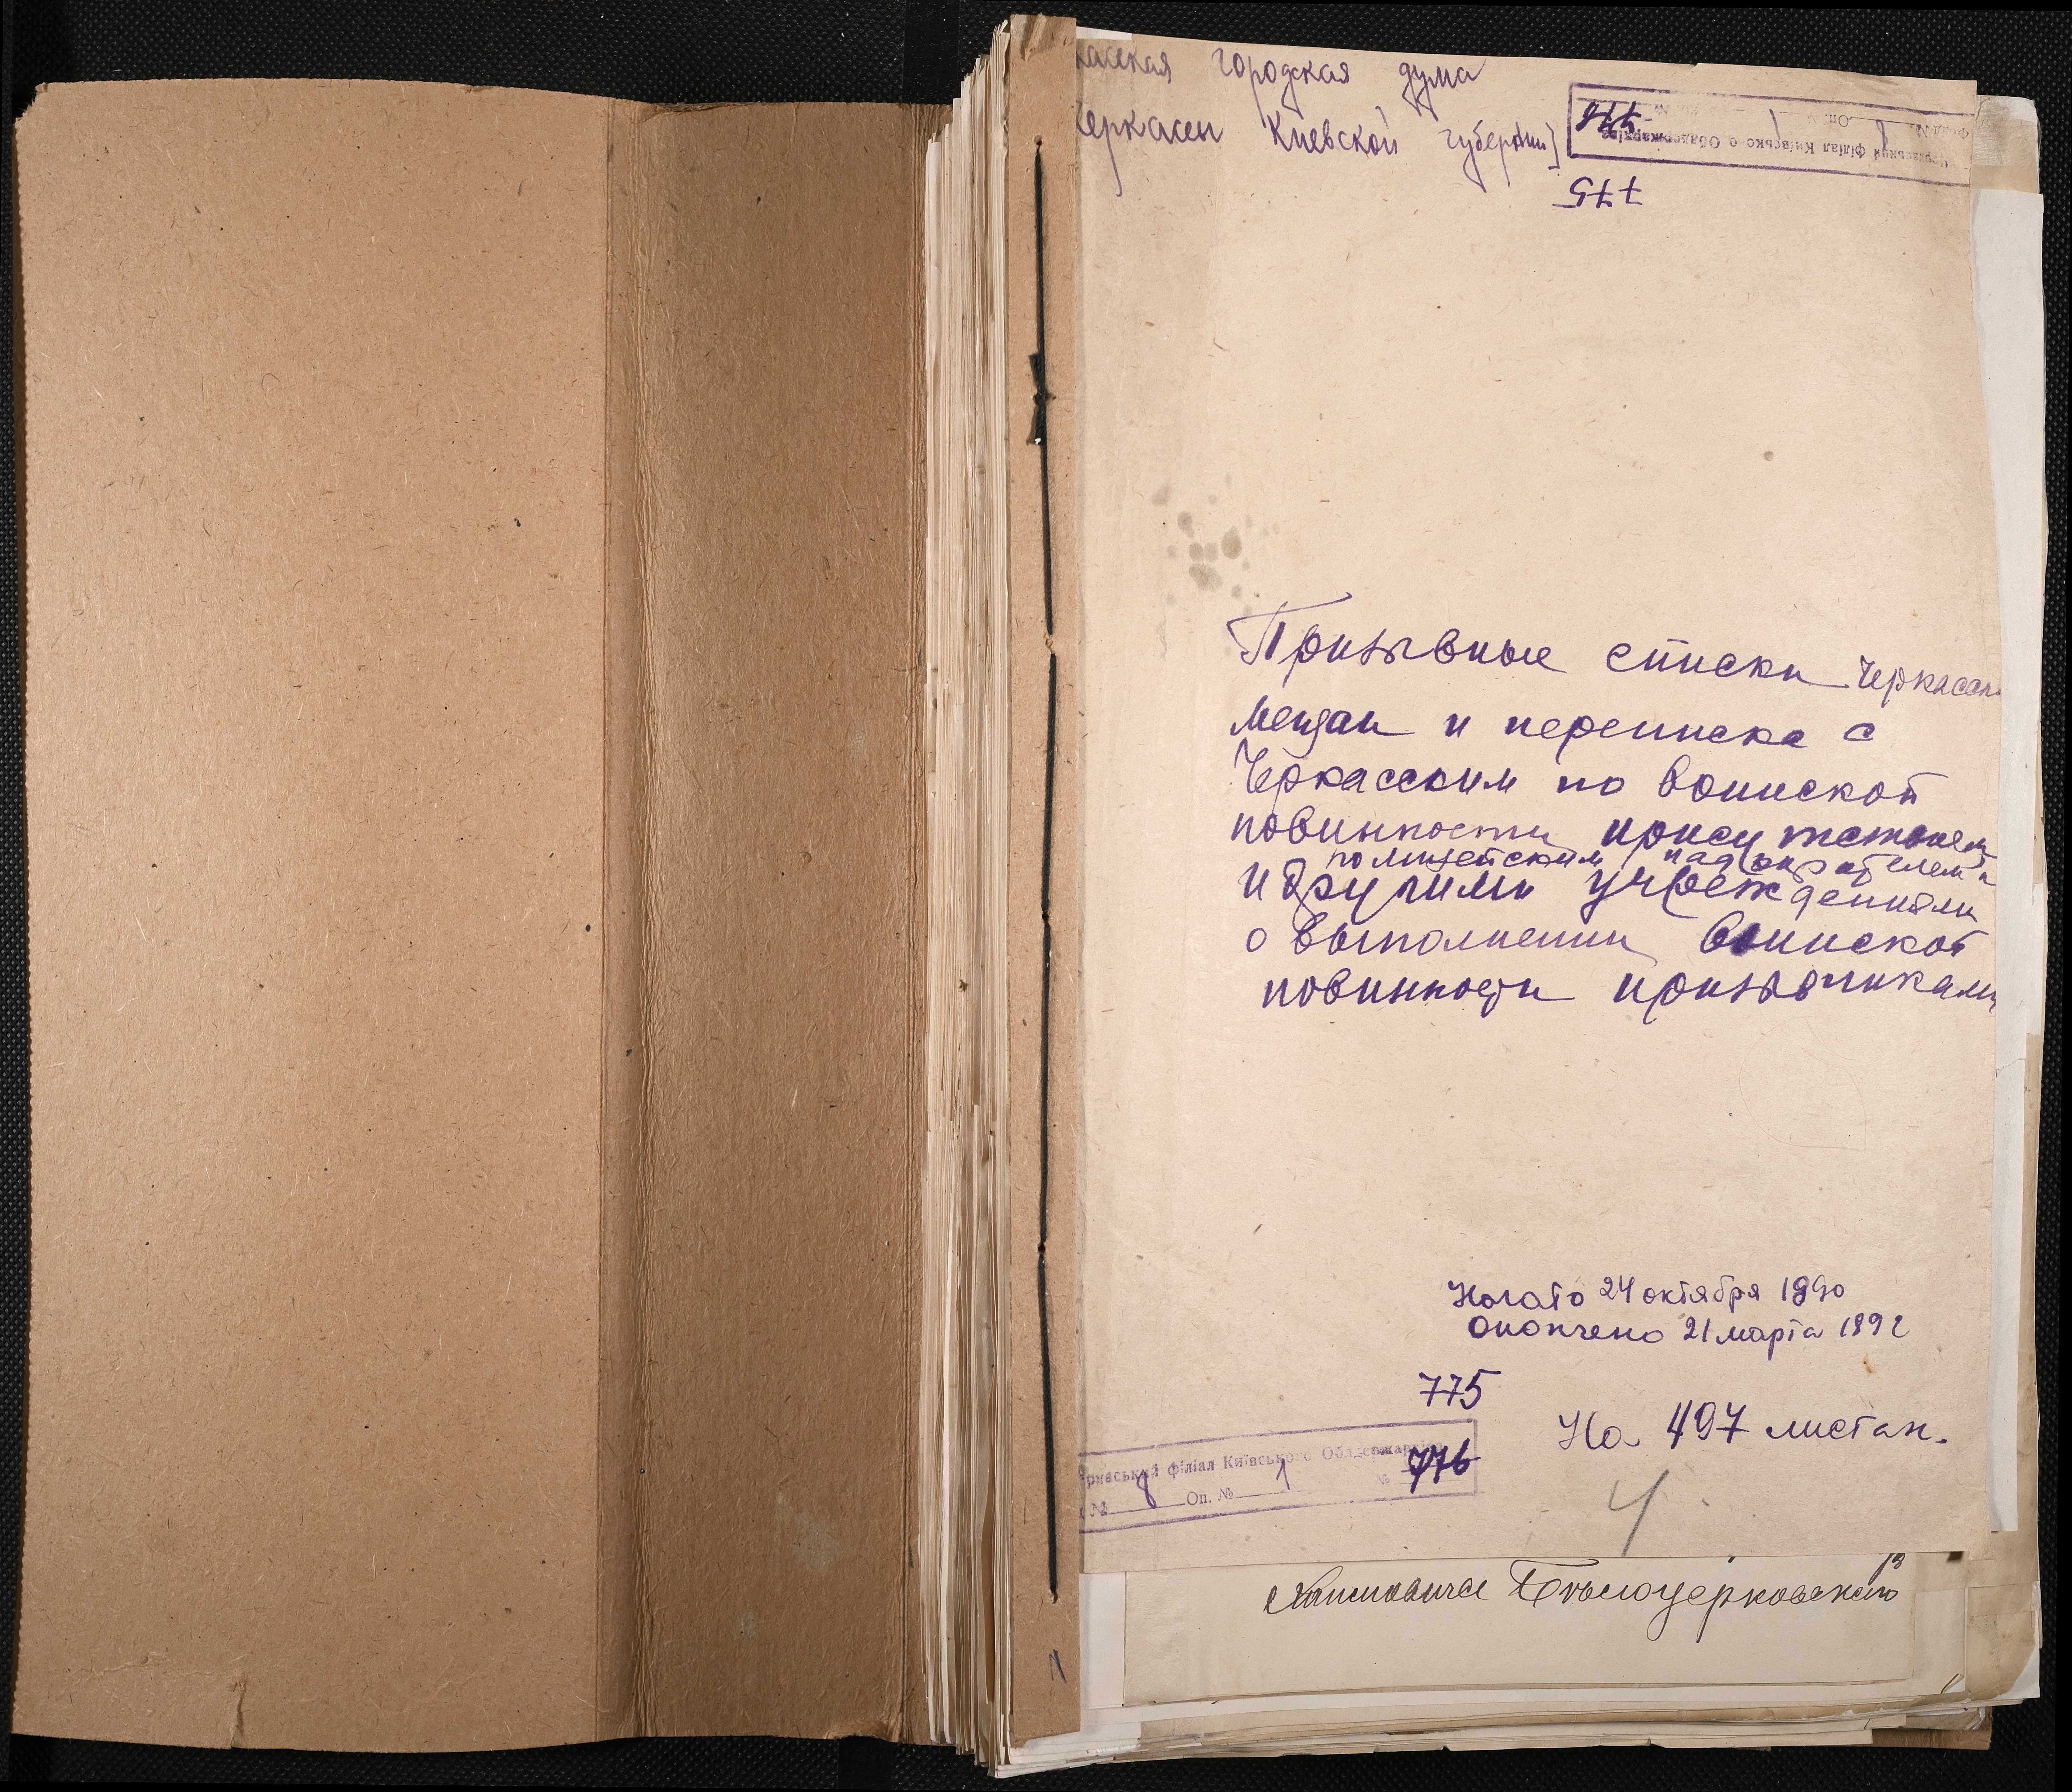 касская городская дума
Черкассы Киевской губернии]
Черкаський філіал Київського Облдержархіва
Фонд № 8 Оп. № 1 № 776
775
Призывные списки Черкасск.
мещан и переписка с
Черкасским по воинской
повинности присутствием
полицейским надзирателем и
и другими учреждениями
о выполнении воинской
повинности призывниками
Начато 24 октября 1890
Окончено 21 марта 1892
775
На 497 листах.
ркаський філіал Київського Облдержархіва
№ 8 Оп. № 1 № 776
4
Белоцерковского